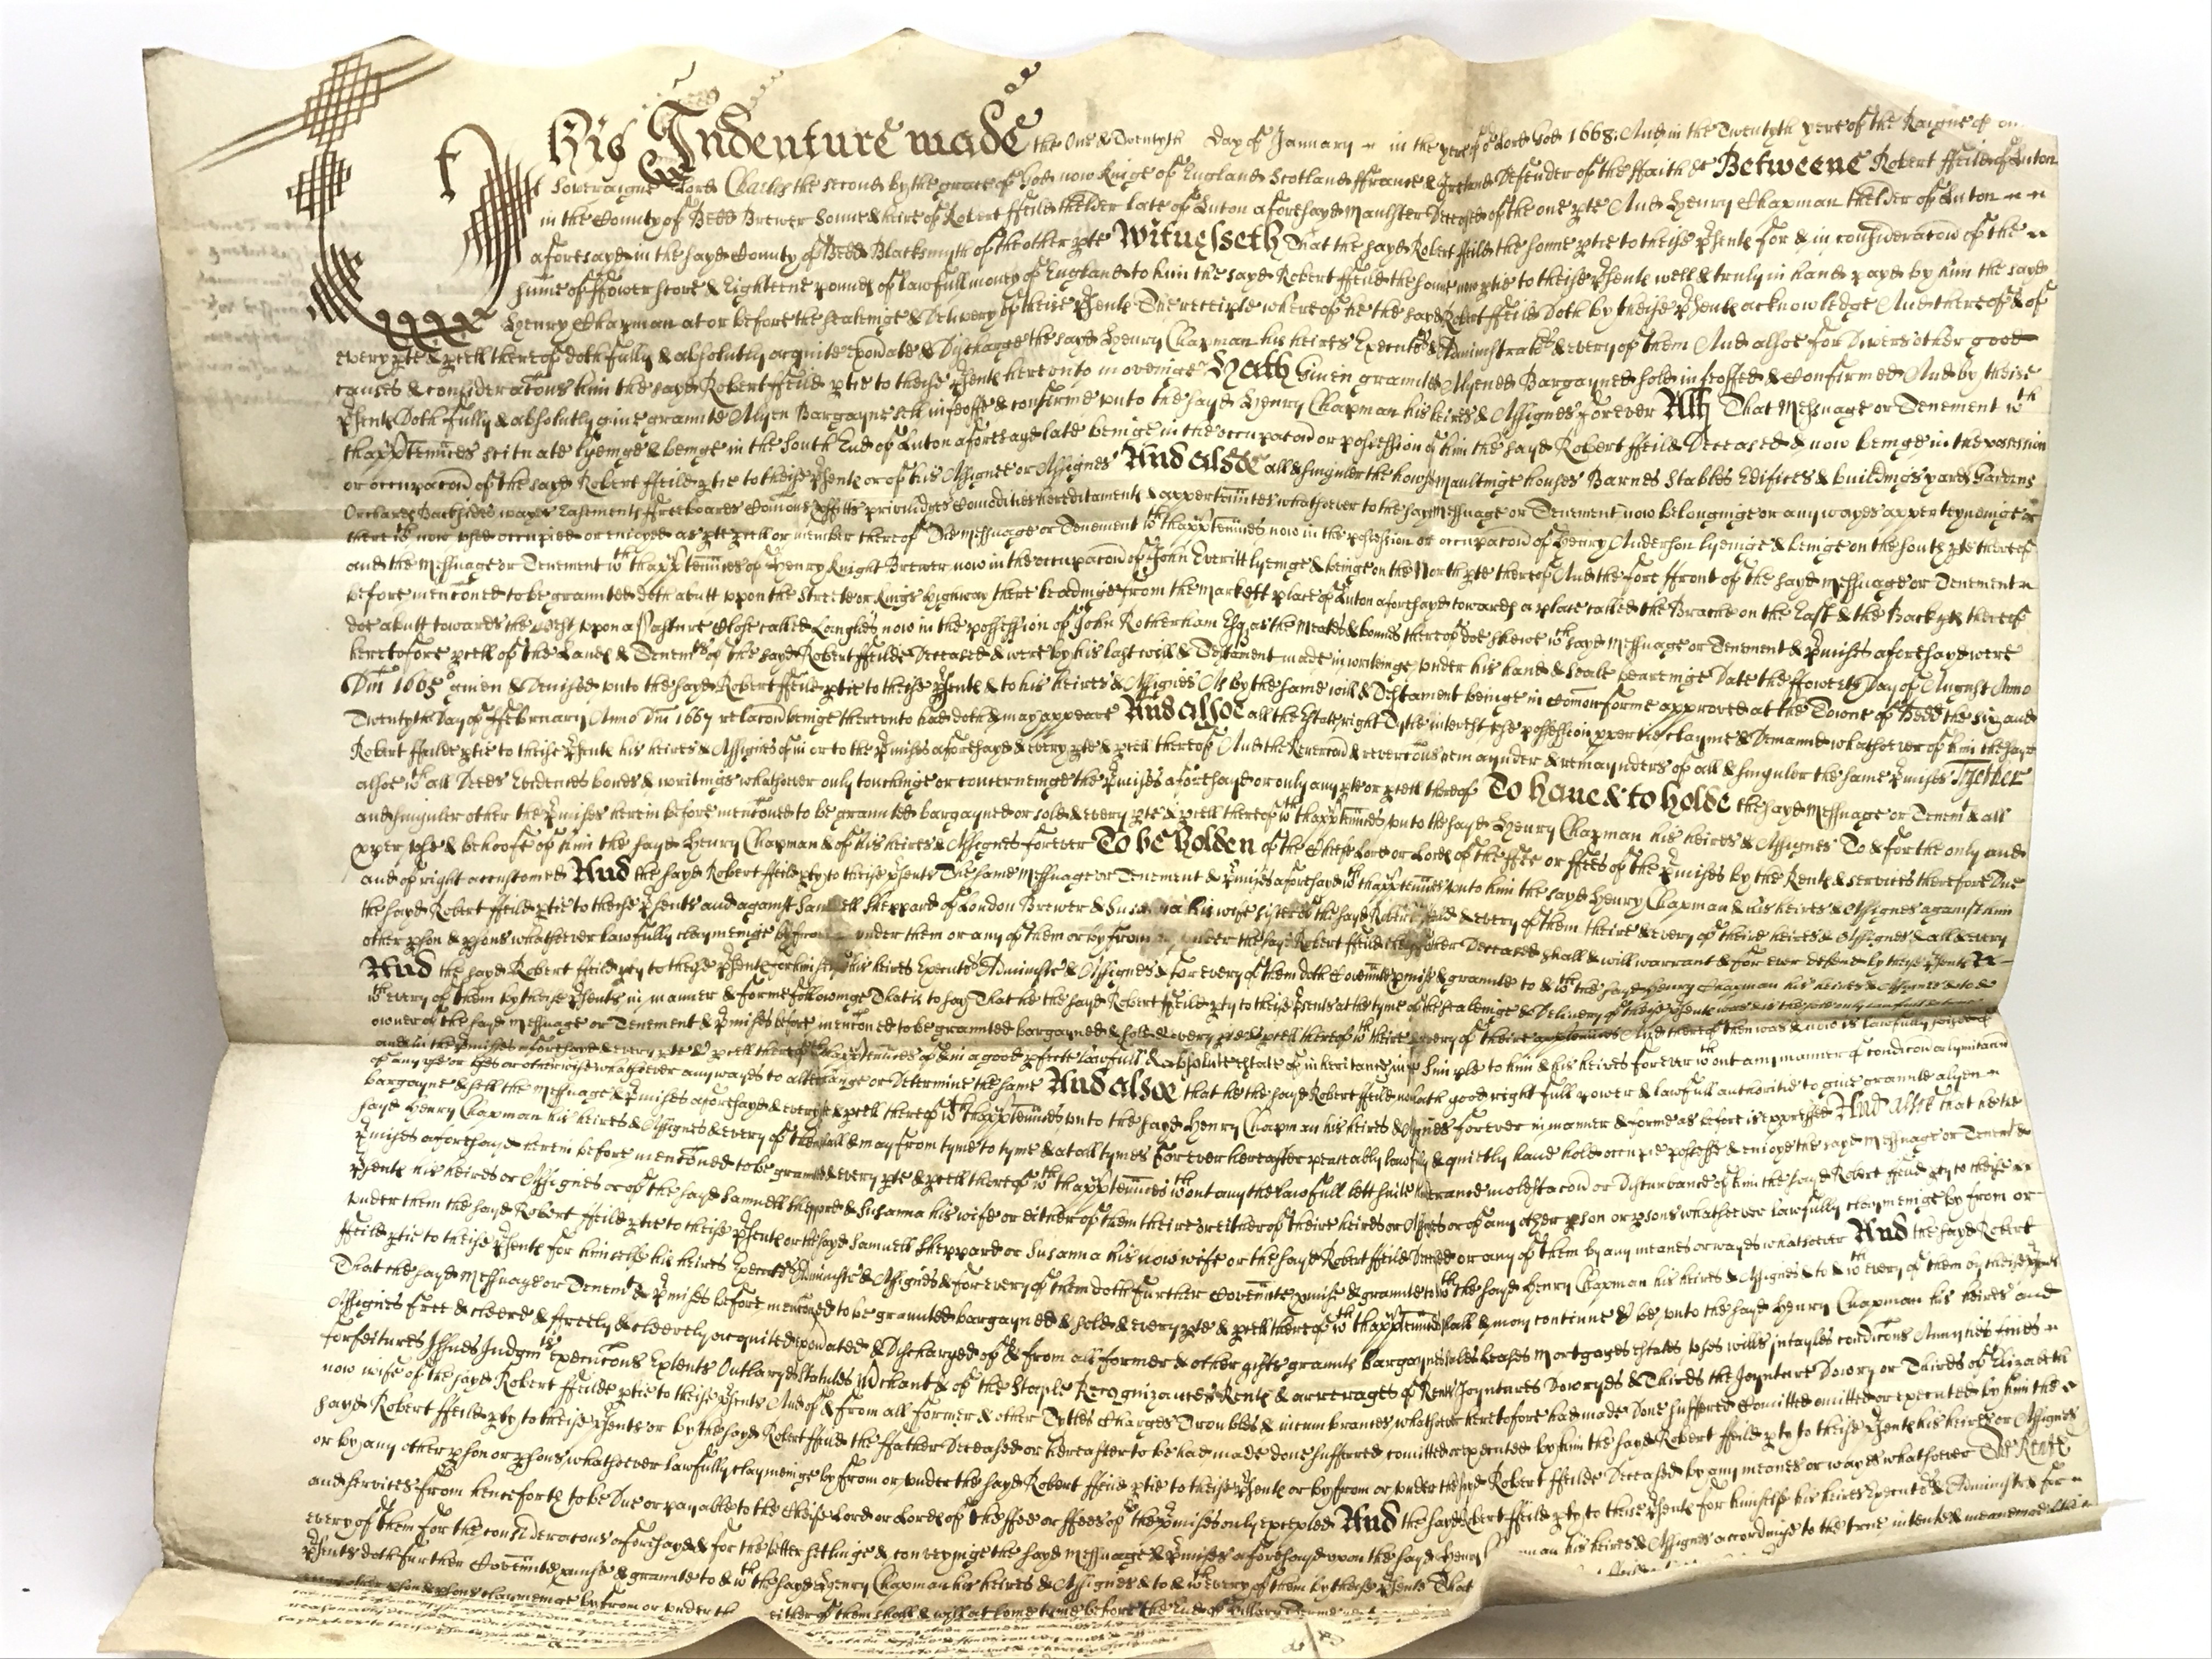 This Indenture made the One & Twentyth Day of January in the yere of or Lord God 1668: And in the Twentyth yere of the Raigne of
Soveraigne Lord Charles the second by the grace of God now Kinge of England Scotland ffrance & Ireland Defender of the ffaith &c Betweene Robert ffeild of Luton
in the County of Bedd Brewer Sonne & heire of Robert ffeild thelder late of Luton aforesayd Maulster Deceased of the one pte And Henry Chapman thelder of Luton
aforesayd in the sayd County of Bedd Blacksmyth of the other pte Witnesseth That the sayd Robert ffeild the sonne ptie to theise psents for & in consideracon of the
sume of ffower score & Eighteene pounds of lawfull money of England to him the sayd Robert ffeild the sonne ptie to theise psents well & truly in hand payd by him the sayd
Henry Chapman at or before the sealeinge & Delivery of theise psents The receipte whereof he the sayd Robert ffeild Doth by theise psents acknowledge And thereof & of
every pte & pcell thereof doth fully & absolutely acquite exonate & Discharge the sayd Henry Chapman his heires Executrs Administratrs & every of them And alsoe for Divers other good
causes & consideracons him the sayd Robert ffeild ptie to theise psents hereunto moveinge Hath Given graunted Alyened Bargayned sold infeoffed & Confirmed And by theise
psents Doth fully & absolutely give graunte Alyen Bargayne sell infeoffe & confirme unto the sayd Henry Chapman his heires & Assignes forever All That Messuage or Tenement wth
thapptennces scituate lyeinge & beinge in the South End of Luton aforesayd late beinge in the occupacon or possession of him the sayd Robert ffeild Deceased & now beinge in the possession
or occupacon of the sayd Robert ffeild ptie to theise psents or of his Assignee or Assignes And alsoe all & singuler the howses maultinge houses Barnes Stables Edifices & buildings yards Gardens
Orchards Backsides wayes Easements ffreeboards Comons pffitts priviledges Comodities hereditaments & appertennces whatsoever to the sayd Messuage or Tenement now belonginge or any wayes apperteyneinge or
there wth now used occupied or enjoyed as pte pcell or member thereof The Messuage or Tenement wth thapptennces now in the possession or occupacon of Henry Anderson lyeinge & beinge on the South pte thereof
and the Messuage or Tenement wth thapptennces of Henry Knight Brewer now in the occupacon of John Everitt lyeinge & beinge on the North pte thereof And the fore ffront of the sayd Messuage or Tenement
before menconed to be graunted doth abutt upon the Streete or Kings highway there leadinge from the Markett place of Luton aforesayd towards a place called the Brache on the East & the Backpt thereof
doe abutt towards the West upon a Pasture Close called Langlies now in the possession of John Rotherham Esq as the meates & bounds thereof doe shewe wch sayd Messuage or Tenement & pmises aforesayd were
heretofore pcell of the Lands & Tenemts of the sayd Robert ffeilde Deceased & were by his last will & Testament made in writeinge under his hand & seale beareinge Date the ffowerth Day of August Anno
Dni 1665 given & Devised unto the sayd Robert ffeild ptie to theise psents & to his heires & Assignes As by the same will & Testament beinge in Comon forme approved at the Towne of Bedd the six and
Twentyth Day of ffebruary Anno Dni 1667 relacon beinge thereunto had doth & may appeare And alsoe all the Estate right Tytle interest use possession pptie clayme & Demannd whatsoever of him the sayd
Robert ffeilde ptie to theise psents his heires & Assignes of in or to the pmises aforesayd & every pte & pcell thereof And the Revercon & revercons remaynder & remaynders of all & singuler the same pmises Together
alsoe wth all Deeds Evidences bonds & writings whatsoever only touchinge or concerneinge the pmises aforesayd or only any pte or pcell thereof To have & to holde the sayd Messuage or Tenemt & all
and singuler other the pmises herein before menconed to be graunted bargayned or sold & every pte & pcell thereof wth thapptennces unto the sayd Henry Chapman his heires & Assignes To & for the only and
pper use & behoofe of him the sayd Henry Chapman & of his heires & Assignes forever To be holden of the Cheife Lord or Lords of the ffee or ffees of the pmises by the Rents & services therefore Due
and of right accustomed And the sayd Robert ffeild pty to theise psents The same Messuage or Tenement & pmises aforesayd wth thapptennces unto him the sayd Henry Chapman & his heires & Assignes against him
the sayd Robert ffeild ptie to theise psents and against Samuell Sheppard of London Brewer & Susanna his wife sister of the sayd Robert ffeild & every of them theire & every of theire heires & Assignes & all & every
other pson & psons whatsoever lawfully claymeinge by from or under them or any of them or by from or under the sayd Robert ffeild the father Deceased shall & will warrant & for ever defend by theise psents
And the sayd Robert ffeild pty to theise psents for himself his heires Executrs Administrs & Assignes & for every of them doth Covennte pmise & graunte to & wth the sayd Henry Chapman his heires & Assignes & to &
wth every of them by theise psents in manner & forme followinge That is to say That he the sayd Robert ffeild pty to theise psents at the tyme of the sealeinge & Delivery of theise psents was & is the sole only lawfull
owner of the sayd Messuage or Tenement & pmises before menconed to be graunted bargayned & sold & every pte & pcell thereof wth theire & every of theire apptennces And thereof then was & now is lawfully seized
and in the pmises aforesayd & every pte & pcell thereof wth thapptennces of in a good pfecte lawfull & absolute estate of inheritance in ffee simple to him & his heires forever wthout any manner of condicon or lymitacon
of any use or uses or otherwise whatsoever any wayes to alter change or Determine the same And alsoe that he the sayd Robert ffeild now hath good right full power & lawfull authoritie to give graunte alyen
bargayne & sell the Messuage & pmises aforesayd & every pte & pcell thereof wth thapptennces unto the sayd Henry Chapman his heires & Assignes forever in manner & forme as before is expressed And alsoe that he the
sayd Henry Chapman his heires & Assignes & every of them shall & may from tyme to tyme & at all tymes forever hereafter peaceably lawfully & quietly have hold occupie possesse & enjoye the sayd Messuage or Tenemt &
pmises aforesayd herein before menconed to be graunted & every pte & pcell thereof wth thapptennces wthout any the lawfull lett suite molestacon or disturbance of him the sayd Robert ffeild pty to theise
psents his heires or Assignes or of the sayd Samuell Sheppard & Susanna his wife or either of them theire or either of theire heires or Assignes or of any other pson or psons whatsoever lawfully claymeinge by from or
under them the sayd Robert ffeild ptie to theise psents or the sayd Samuell Sheppard or Susanna his now wife or the sayd Robert ffeild Deceased or any of them by any meanes or wayes whatsoever And the sayd Robert
ffeild ptie to theise psents for himselfe his heires Executrs Administrs & Assignes & for every of them doth Further Covennte pmise & graunte to & wth the sayd Henry Chapman his heires & Assignes & to & wth every of them by theise psents
That the sayd Messuage or Tenemt & pmises before menconed to be graunted bargayned & sold & every pte & pcell thereof wth thapptennces shall & may continue & be unto the sayd Henry Chapman his heires and
Assignes free & cleere & ffreely & cleerely acquited exonated & Discharged of & from all former & other gifts graunts bargaynes sales leases Mortgages estates uses wills intayles condicons Annuties fines
forfeitures Issues Judgmts Execucons Extents Outlaryes Statutes Mchant & of the Staple Recognizances Rents & arrerages of Rents Joyntures Dowryes & Thirds the Joynture Dowry or Thirds of Elizabeth
now wife of the sayd Robert ffeilde ptie to theise psents And of & from all former & other Tytles Charges Troubles & incumbrances whatsoever heretofore had made done suffered Comitted omitted or executed by him the
sayd Robert ffeild pty to theise psents or by the sayd Robert ffeild the ffather Deceased or hereafter to be had made done suffered comitted or executed by him the sayd Robert ffeild pty to theise psents his heires or Assignes
or by any other pson or psons whatsoever lawfully claymeinge by from or under the sayd Robert ffeild ptie to theise psents or by from or under the sayd Robert ffeilde Deceased by any meanes or wayes whatsoever The Rents
and services from henceforth to be Due or payable to the Cheife Lord or Lords of the ffee or ffees of the pmises only excepted And the sayd Robert ffeild pty to theise psents for himselfe his heires Executrs & Administrs & for
every of them for the consideracons aforesayd & for the better setlinge & conveyinge the sayd Messuage & pmises aforesayd upon the sayd Henry his heires & Assignes accordinge to the true intente & meaneinge
psents doth further Covennte pmise & graunte to & wth the sayd Henry Chapman his heires & Assignes & to & wth every of them by theise psents That
other pson & psons claymeinge by from or under either of them shall & will at some tyme before the End of Hillary Terme